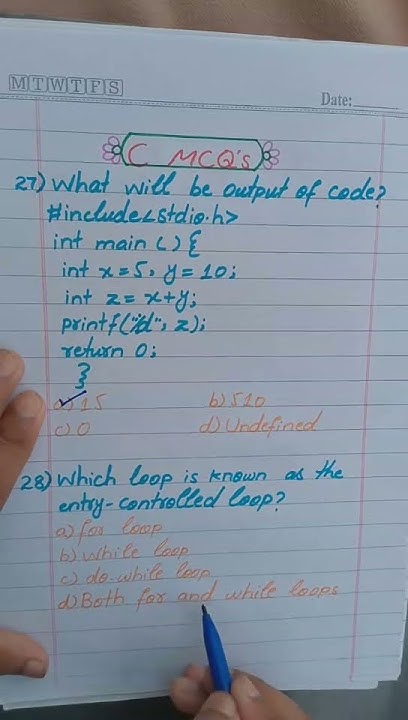 M T W T F S
Date:
C MCQ's
27) What will be output of code?
#include<stdio.h>
int main () {
int x=5, y=10;
int z = x+y;
printf("%d", z);
return 0;
}
a) 15 b) 510
c) 0 d) Undefined
28) Which loop is known as the
entry-controlled loop?
a) for loop
b) while loop
c) do-while loop
d) Both for and while loops